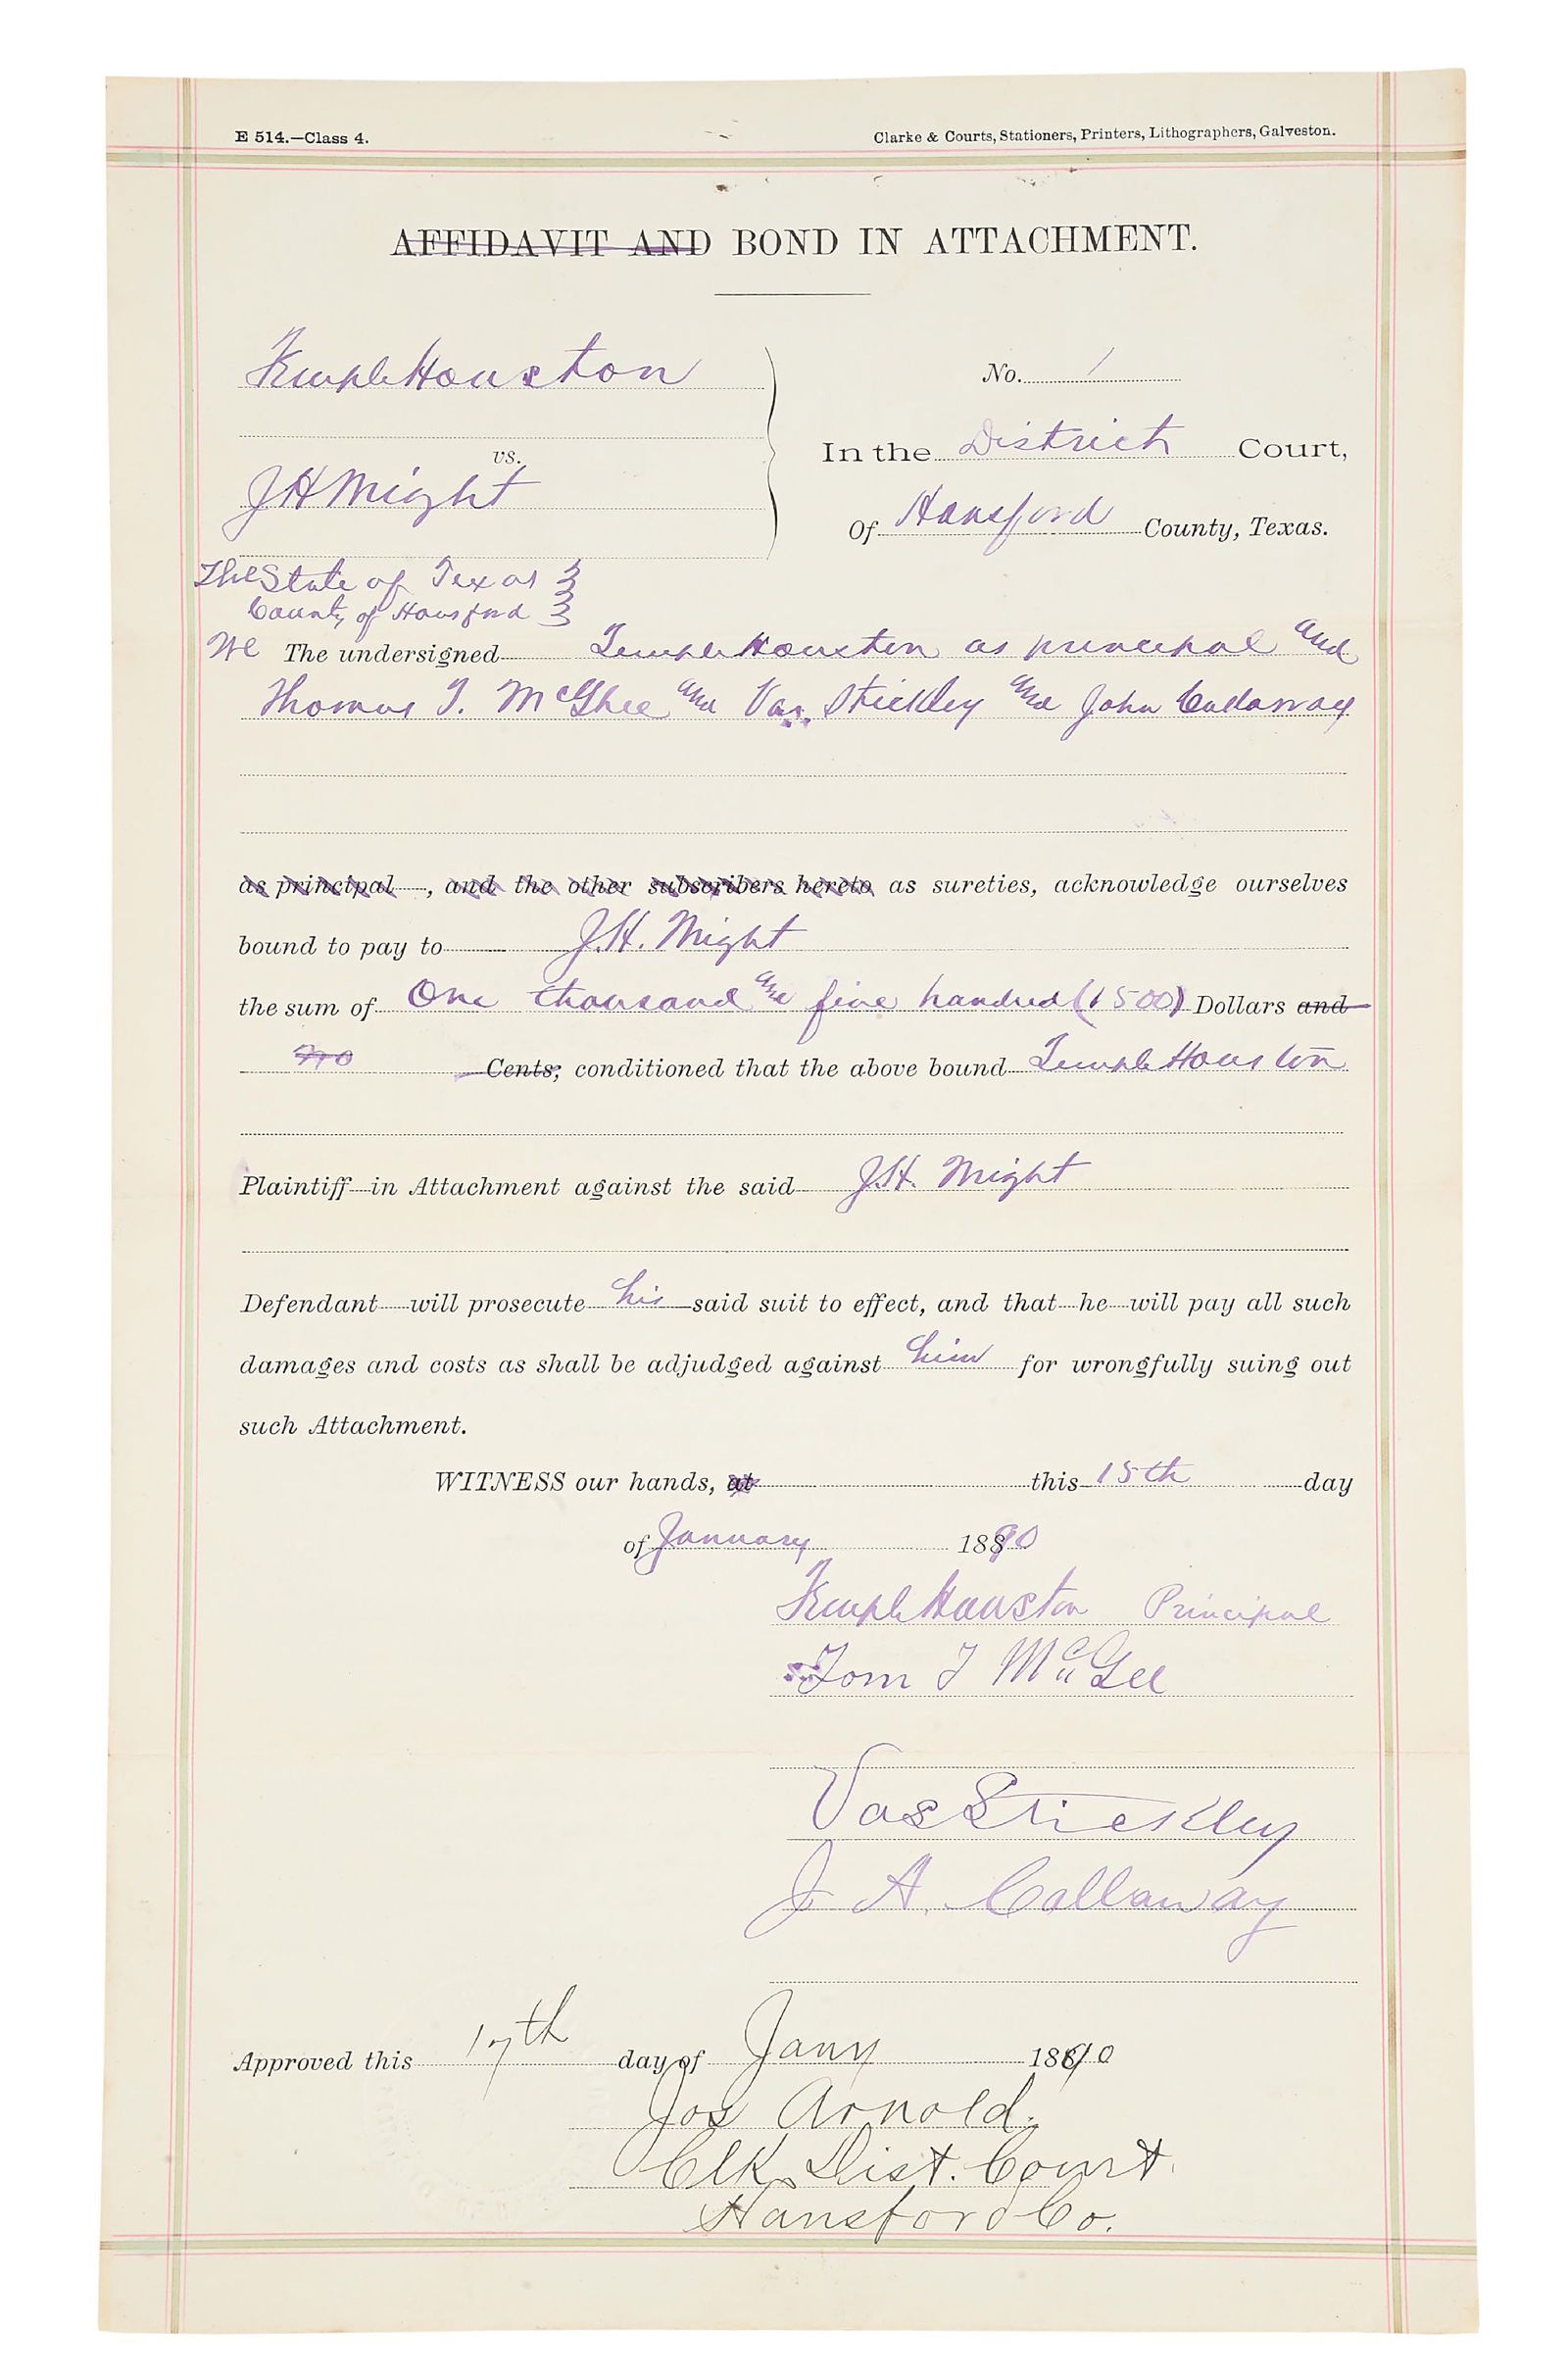 E 514.—Class 4.
Clarke & Courts, Stationers, Printers, Lithographers, Galveston.
AFFIDAVIT AND BOND IN ATTACHMENT.
Temple Houston
No. 1
vs.
In the District Court,
J H Wright
Of Hansford County, Texas.
The State of Texas
County of Hansford
We The undersigned Temple Houston as principal and
Thomas T. McGhee and Vas. Stickley and John Callaway
as principal, and the other subscribers hereto as sureties, acknowledge ourselves
bound to pay to J.H. Wright
the sum of One thousand and five hundred (1500) Dollars and
no Cents; conditioned that the above bound Temple Houston
Plaintiff in Attachment against the said J.H. Wright
Defendant will prosecute his said suit to effect, and that he will pay all such
damages and costs as shall be adjudged against him for wrongfully suing out
such Attachment.
WITNESS our hands, at this 15th day
of January 1890
Temple Houston Principal
Tom T McGee
Vas Stickley
J A. Callaway
Approved this 17th day of Jany 1890
Jos Arnold.
Clk Dist. Court.
Hansford Co.